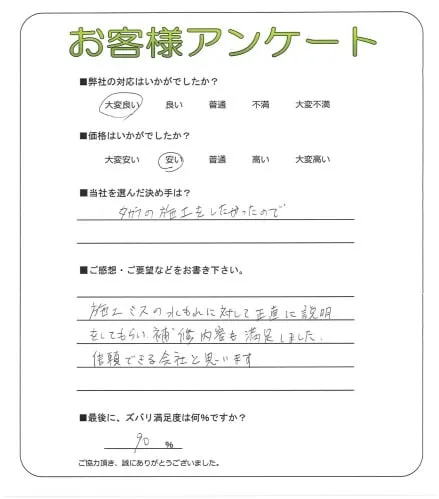 お客様アンケート
■弊社の対応はいかがでしたか?
大変良い 良い 普通 不満 大変不満
■価格はいかがでしたか?
大変安い 安い 普通 高い 大変高い
■当社を選んだ決め手は?
タガラの施工をしたかったので
■ご感想・ご要望などをお書き下さい。
施工ミスの水もれに対して正直に説明
をしてもらい、補修内容も満足しました。
信頼できる会社と思います
■最後に、ズバリ満足度は何%ですか?
90 %
ご協力頂き、誠にありがとうございました。